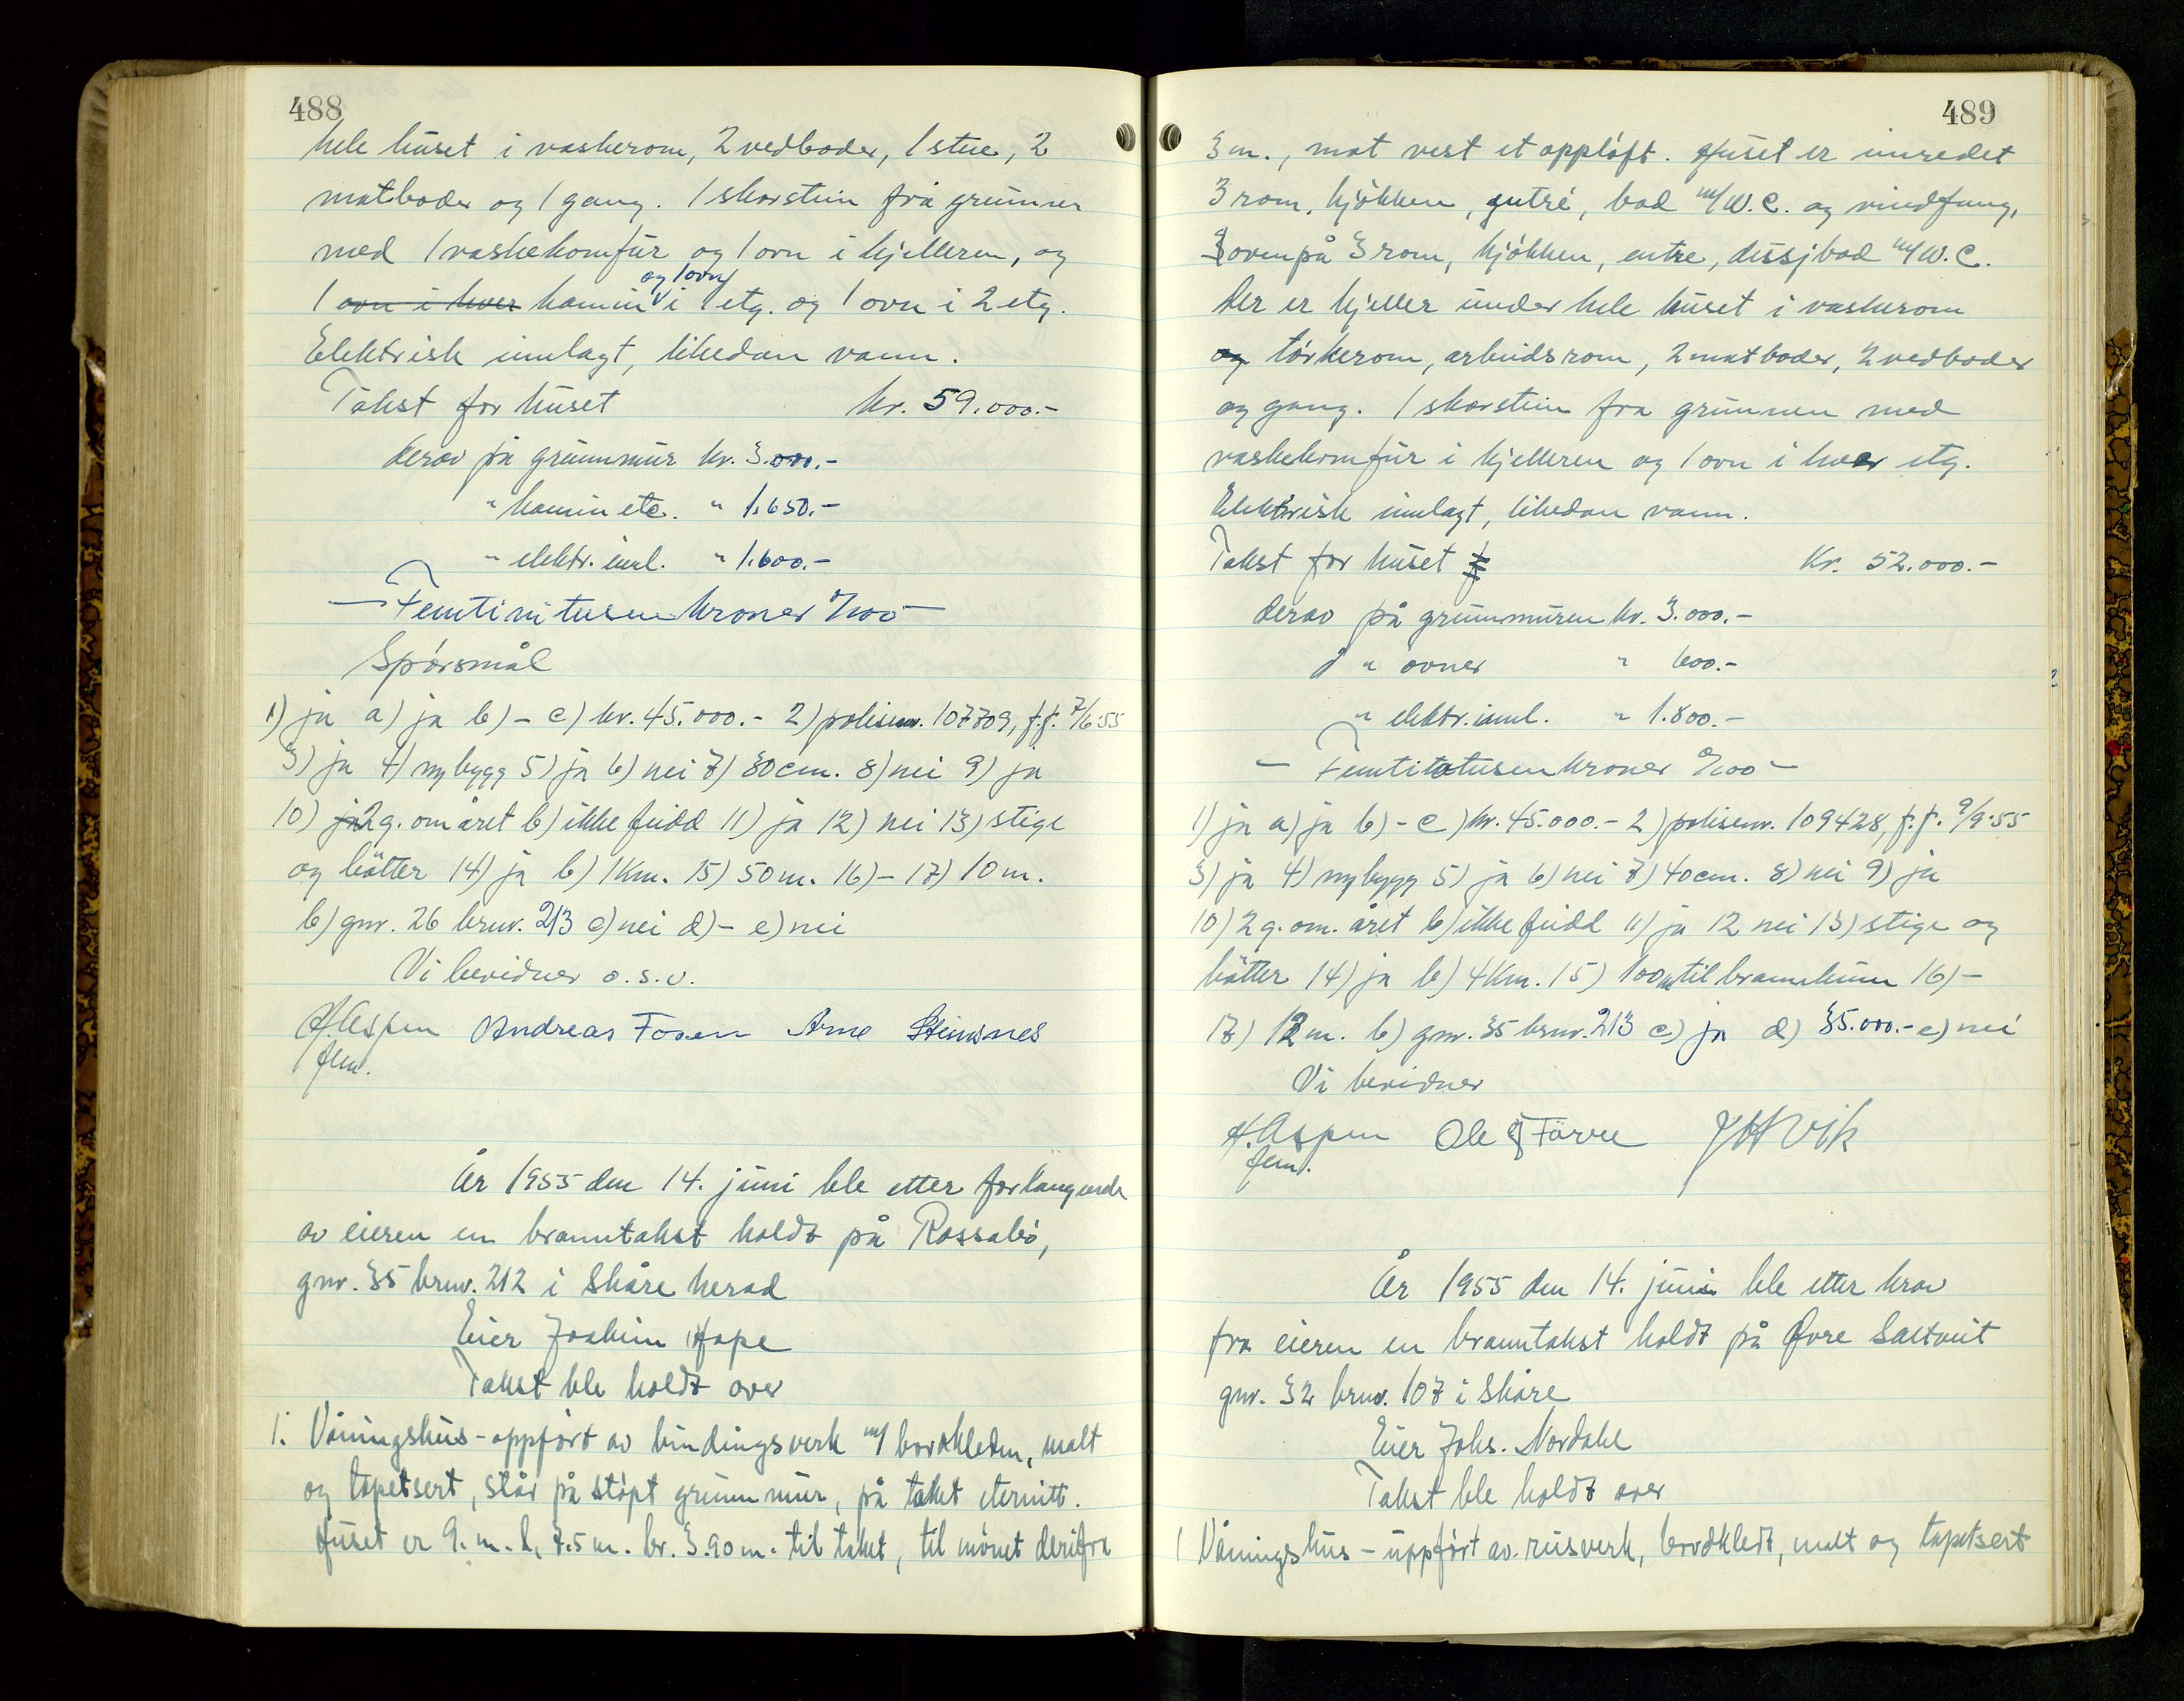 488
hele huset i vaskerom, 2 vedboder, 1 stue, 2
matboder og 1 gang. 1 skorstein frå grunnen
med 1 vaskekomfur og 1 ovn i kjelleren, og
1 ovn i hver kamin og 1 ovn i 1 etg. og 1 ovn i 2 etg.
Elektrisk innlagt, likedan vann.
Takst for huset kr. 59.000.-
derav på grunnmur kr. 3.000.-
" kamin etc. " 1.650.-
" elektr. innl. " 1.600.-
- Femtini tusen kroner 0/100 -
Spørsmål
1) ja a) ja b) - c) kr. 45.000.- 2) polisenr. 107709, f.f. 7/6-55
3) ja 4) nybygg 5) ja 6) nei 7) 30 cm. 8) nei 9) ja
10) ja 2 g. om året b) ikke fuidd 11) ja 12) nei 13) stige
og bøtter 14) ja b) 1 Km. 15) 50 m. 16) - 17) 10 m.
b) gnr. 26 brnr. 213 c) nei d) - e) nei
Vi bevidner o.s.v.
H Aspen Andreas Fosen Arne Steinsnes
fem.
År 1955 den 14. juni ble etter forlangende
av eieren en branntakst holdt på Rossabø,
gnr. 35 brnr. 212 i Skåre herad
Eier Joakim Hope
Takst ble holdt over
1. Våningshus - oppført av bindingsverk m/ bordkleden, malt
og tapetsert, står på støpt grunnmur, på taket eternitt.
Huset er 9. m. l, 7.5 m. br. 3.90 m. til taket, til mønet derifra
489
3 m., mot vest et oppløft. Huset er innredet
3 rom, kjøkken, entré, bad m/W.C. og vindfang,
3 ovenpå 3 rom, kjøkken, entre, dusjbad m/W.C.
Der er kjeller under hele huset i vaskerom
og tørkerom, arbeidsrom, 2 matboder, 2 vedboder
og gang. 1 skorstein fra grunnen med
vaskekomfur i kjelleren og 1 ovn i hver etg.
Elektrisk innlagt, likedan vann.
Takst for huset Kr. 52.000.-
derav på grunnmuren kr. 3.000.-
" ovner " 600.-
" elektr. innl. " 1.800.-
- Femtitotusen kroner 0/100 -
1) ja a) ja b) - c) kr. 45.000.- 2) polisenr. 109428, f.f. 9/9-55
3) ja 4) nybygg 5) ja 6) nei 7) 40 cm. 8) nei 9) ja
10) 2 g. om. året b) ikke fuidd 11) ja 12 nei 13) stige og
bøtter 14) ja b) 4 Km. 15) 100 m til brannkum 16) -
17) 12 m. b) gnr. 35 brnr. 213 c) ja d) 35.000.- e) nei
Vi bevidner
H. Aspen Ole G Førre J H Vik
fem.
År 1955 den 14. juni ble etter krav
fra eieren en branntakst holdt på Øvre Saltveit
gnr. 32 brnr. 107 i Skåre
Eier Johs. Nordahl
Takst ble holdt over
1 Våningshus - uppført av. reisverk, bordkledt, malt og tapetsert